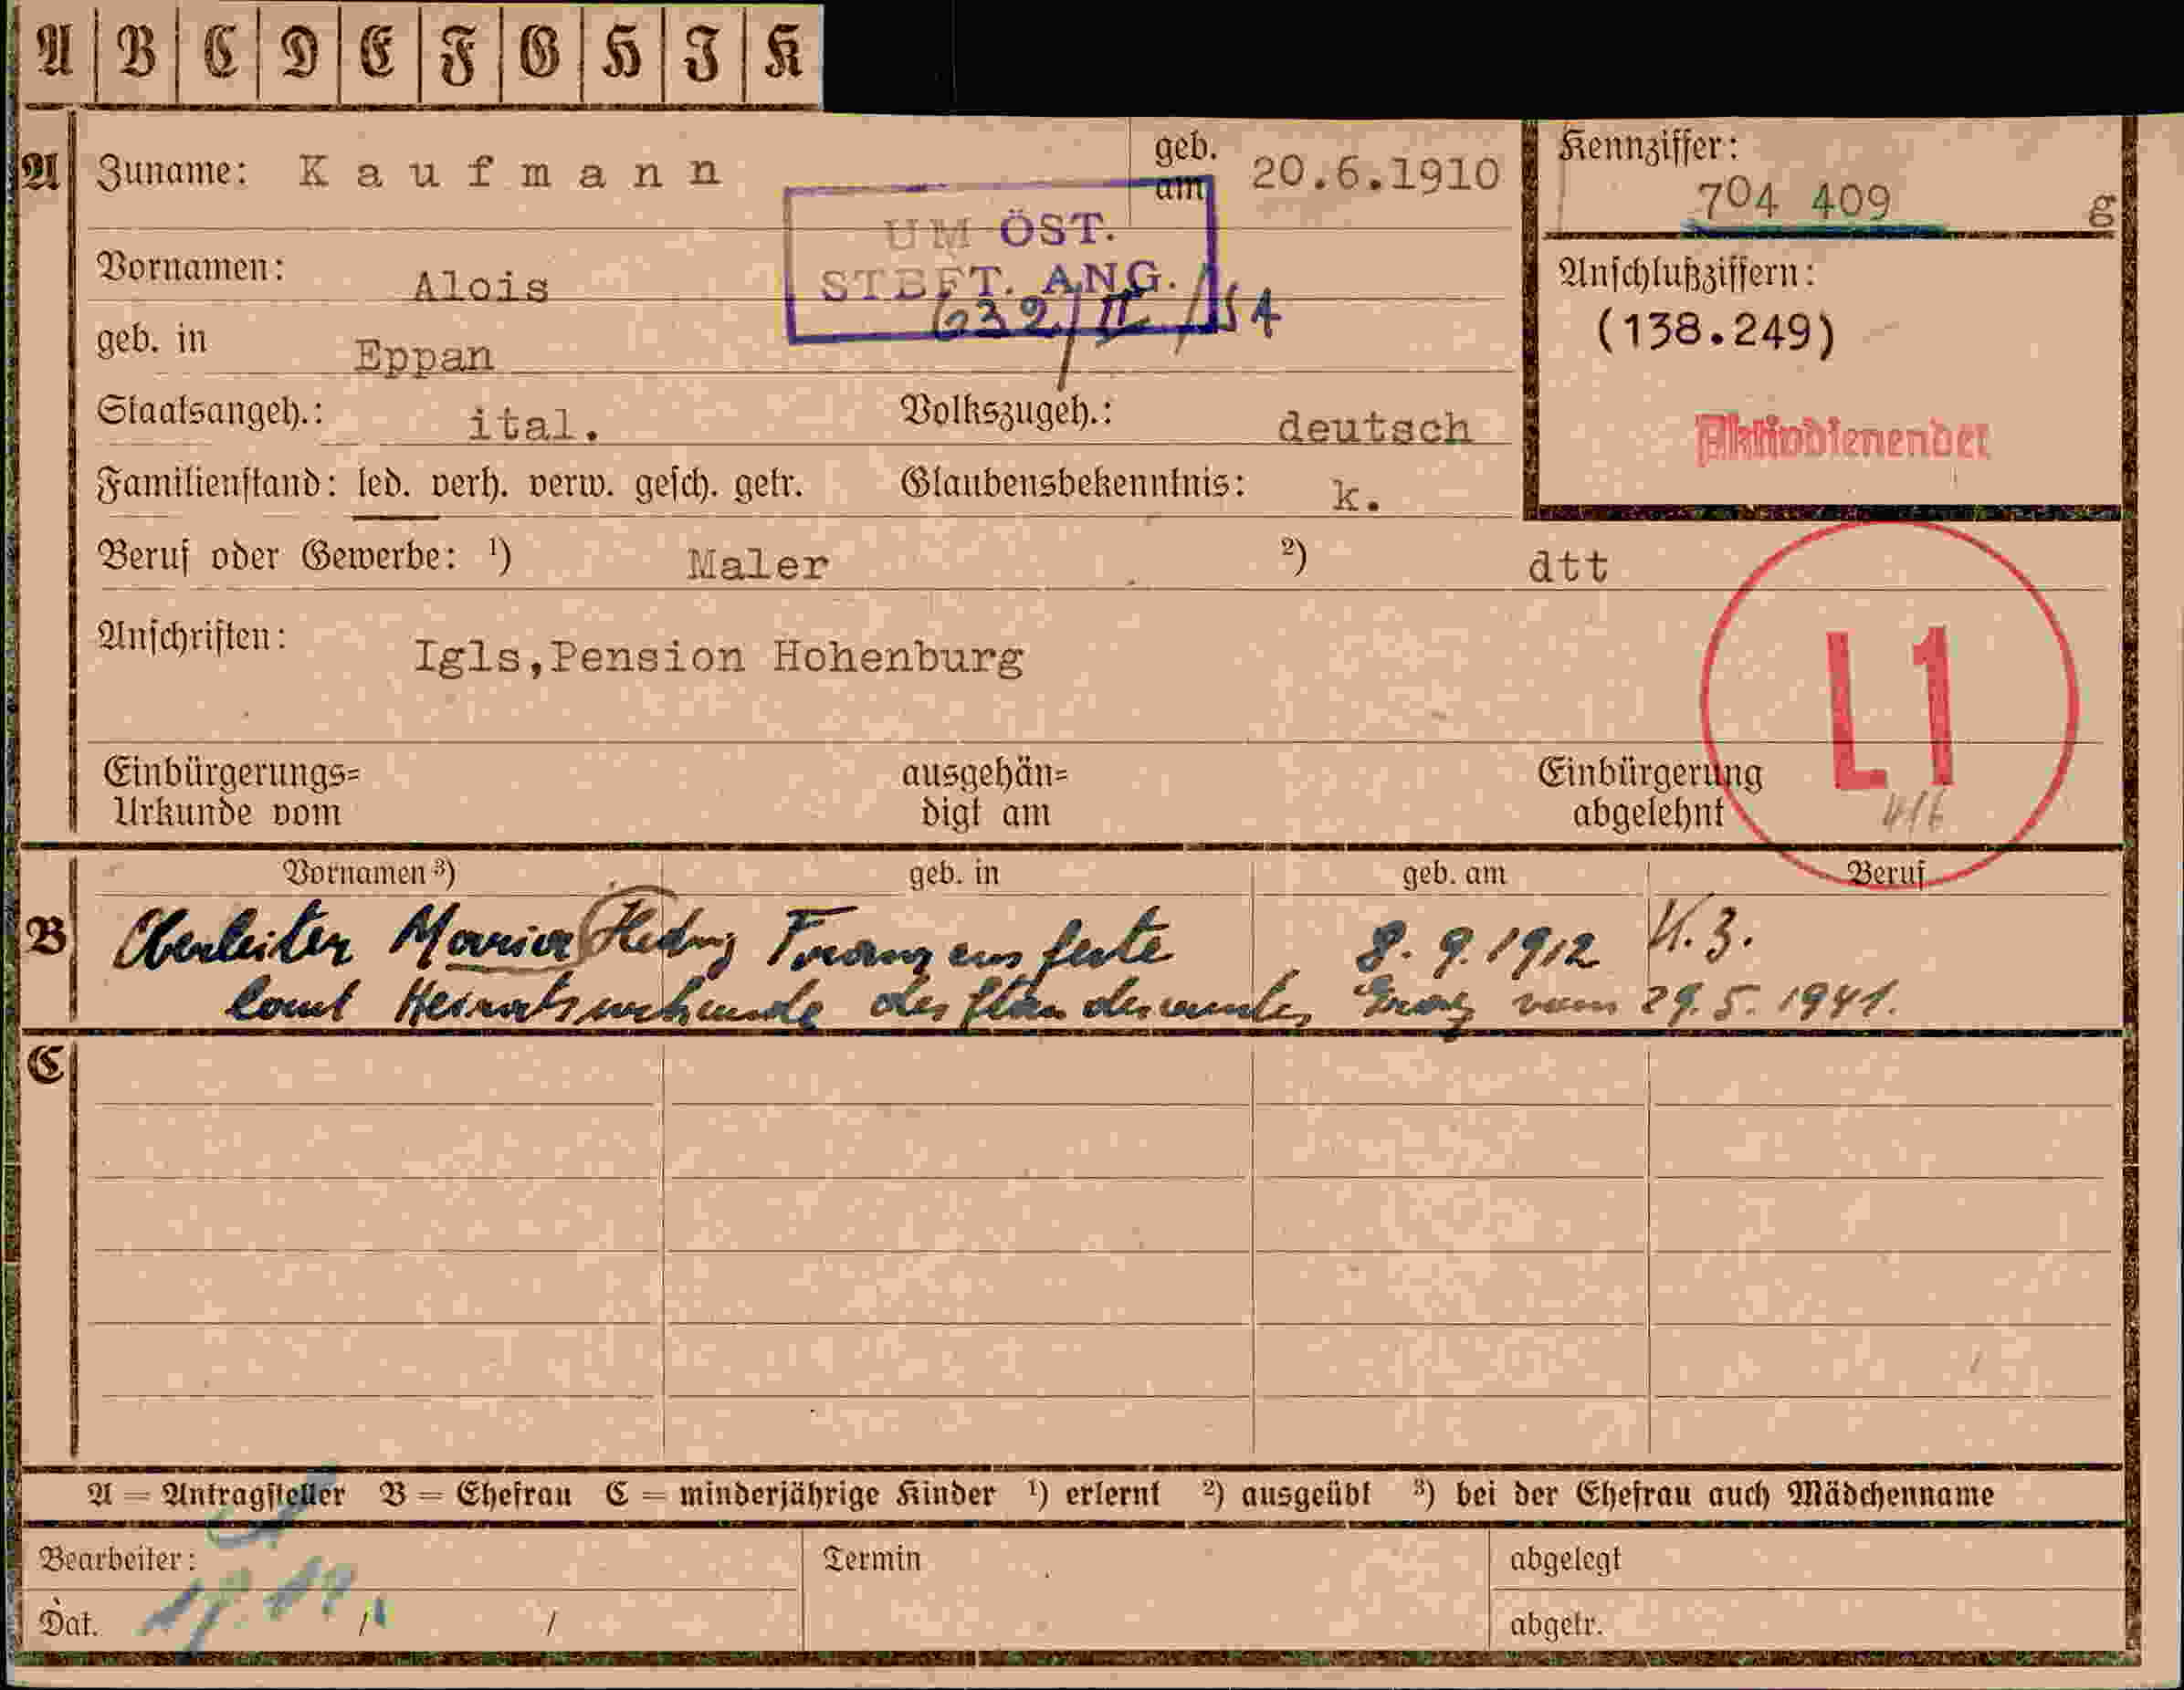 A B C D E F G H I K
A Zuname: Kaufmann geb. am 20.6.1910
Kennziffer: 704 409 g
UM ÖST.
STBFT. ANG.
Vornamen: Alois
Anschlußziffern:
(138.249)
geb. in Eppan
Staatsangeh.: ital. Volkszugeh.: deutsch
Aktivdienender
Familienstand: led. verh. verw. gesch. getr. Glaubensbekenntnis: k.
Beruf oder Gewerbe: 1) Maler 2) dtt
Anschriften: Igls,Pension Hohenburg
L1
Einbürgerungs= ausgehän= Einbürgerung
Urkunde vom digt am abgelehnt
Vornamen 3) geb. in geb. am Beruf
B Oberleiter Maria Hedwig Franzensfeste 8. 9. 1912 K. 3.
laut Heiratsurkunde des Standesamtes Graz vom 29. 5. 1941.
C
A = Antragsteller B = Ehefrau C = minderjährige Kinder 1) erlernt 2) ausgeübt 3) bei der Ehefrau auch Mädchenname
Bearbeiter: Termin abgelegt
Dat. / / abgetr.